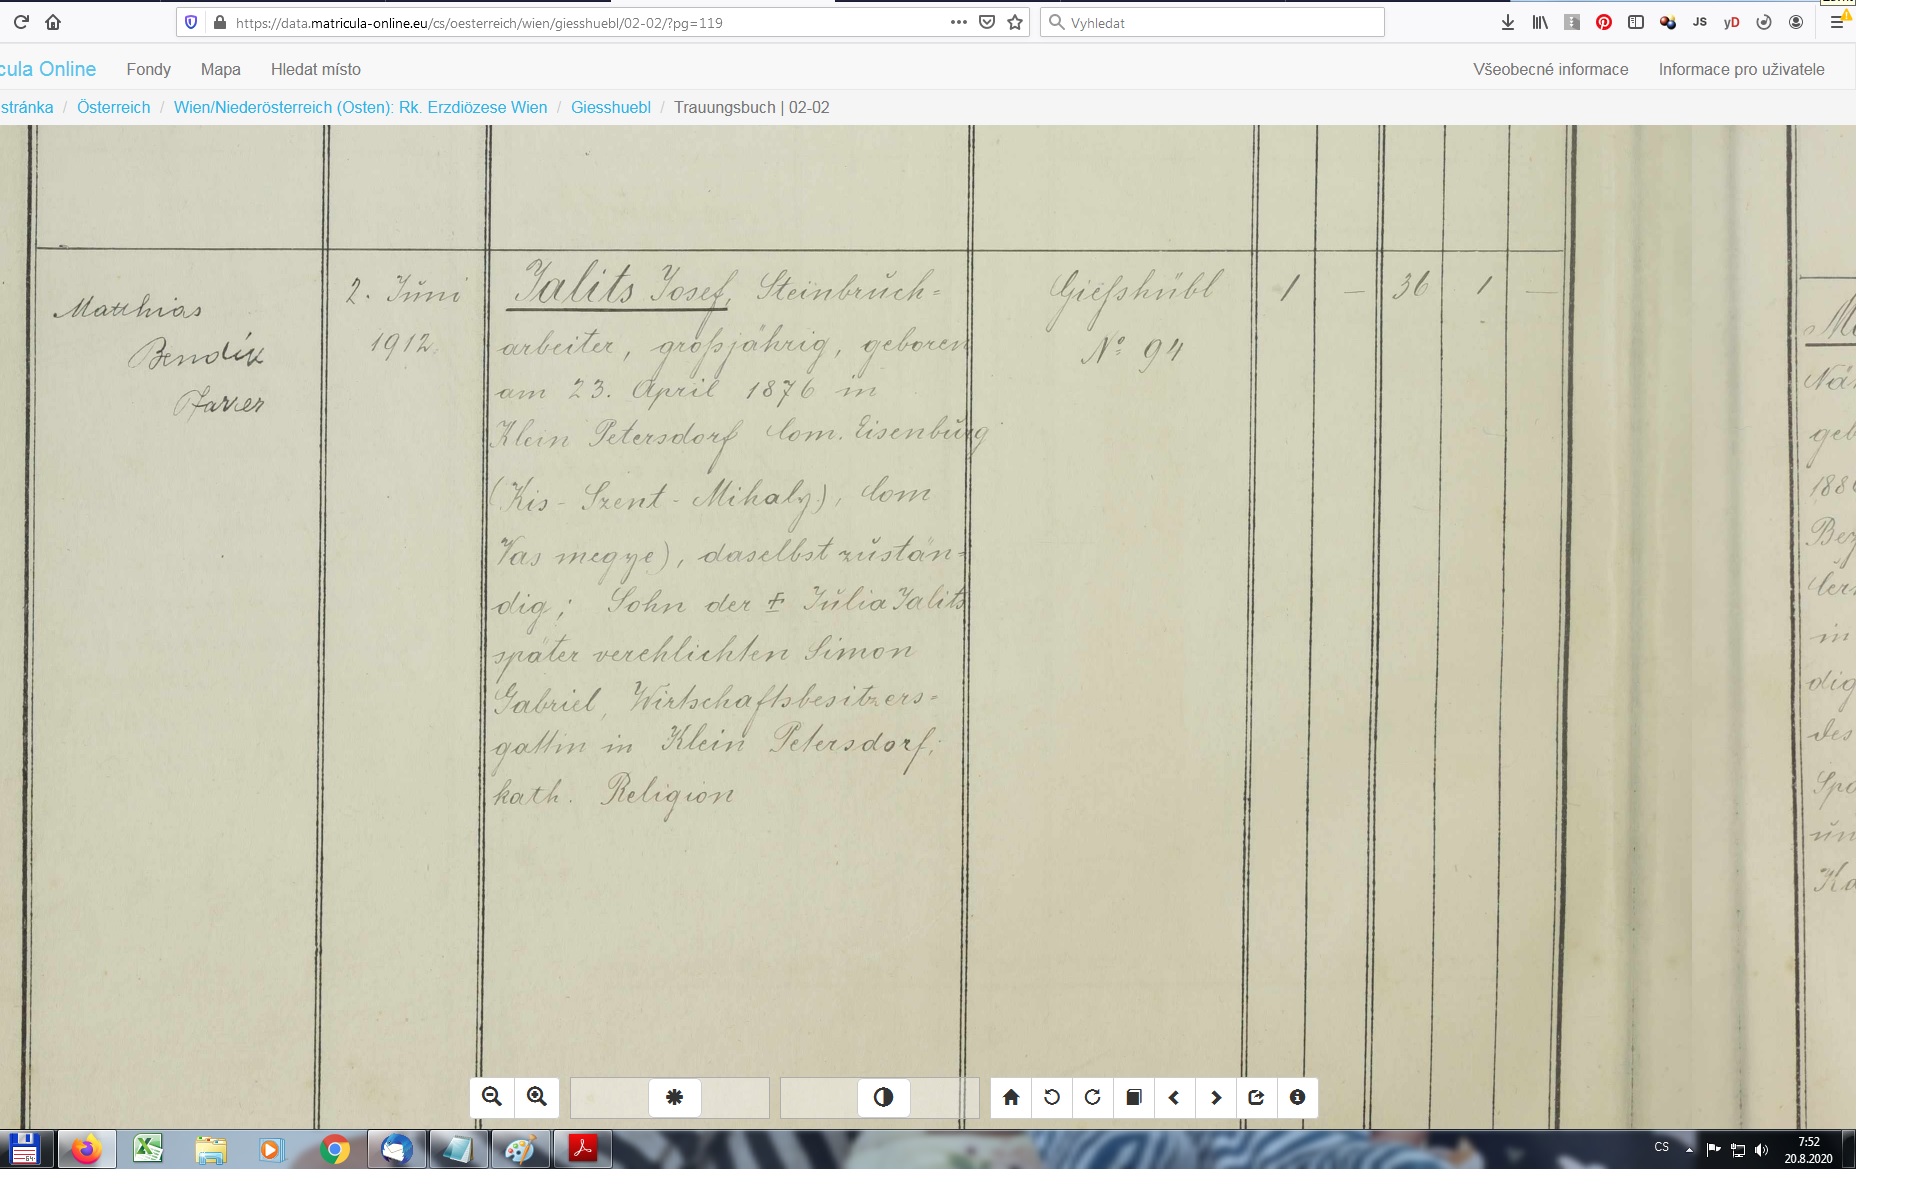 https://data.matricula-online.eu/cs/oesterreich/wien/giesshuebl/02-02/?pg=119
Vyhledat
JS
yD
cula Online
Fondy
Mapa
Hledat místo
Všeobecné informace
Informace pro uživatele
stránka / Österreich / Wien/Niederösterreich (Osten): Rk. Erzdiözese Wien / Giesshuebl / Trauungsbuch | 02-02
Matthias
Bendik
Pfarrer
2. Juni
1912.
Jalits Josef, Steinbruch=
arbeiter, großjährig, geboren
am 23. April 1876 in
Klein Petersdorf Com. Eisenburg
(Kis-Szent-Mihaly), Com
Vas megye), daselbst zustän=
dig; Sohn der Julia Jalits
später verehlichten Simon
Gabriel, Wirtschaftsbesitzers=
gattin in Klein Petersdorf;
kath. Religion
Gießhübl
No 94
1 — 36 1 —
Ná
geb
188
Bez
in
dig
des
Spa
un
Ka
64
CS
7:52
20.8.2020